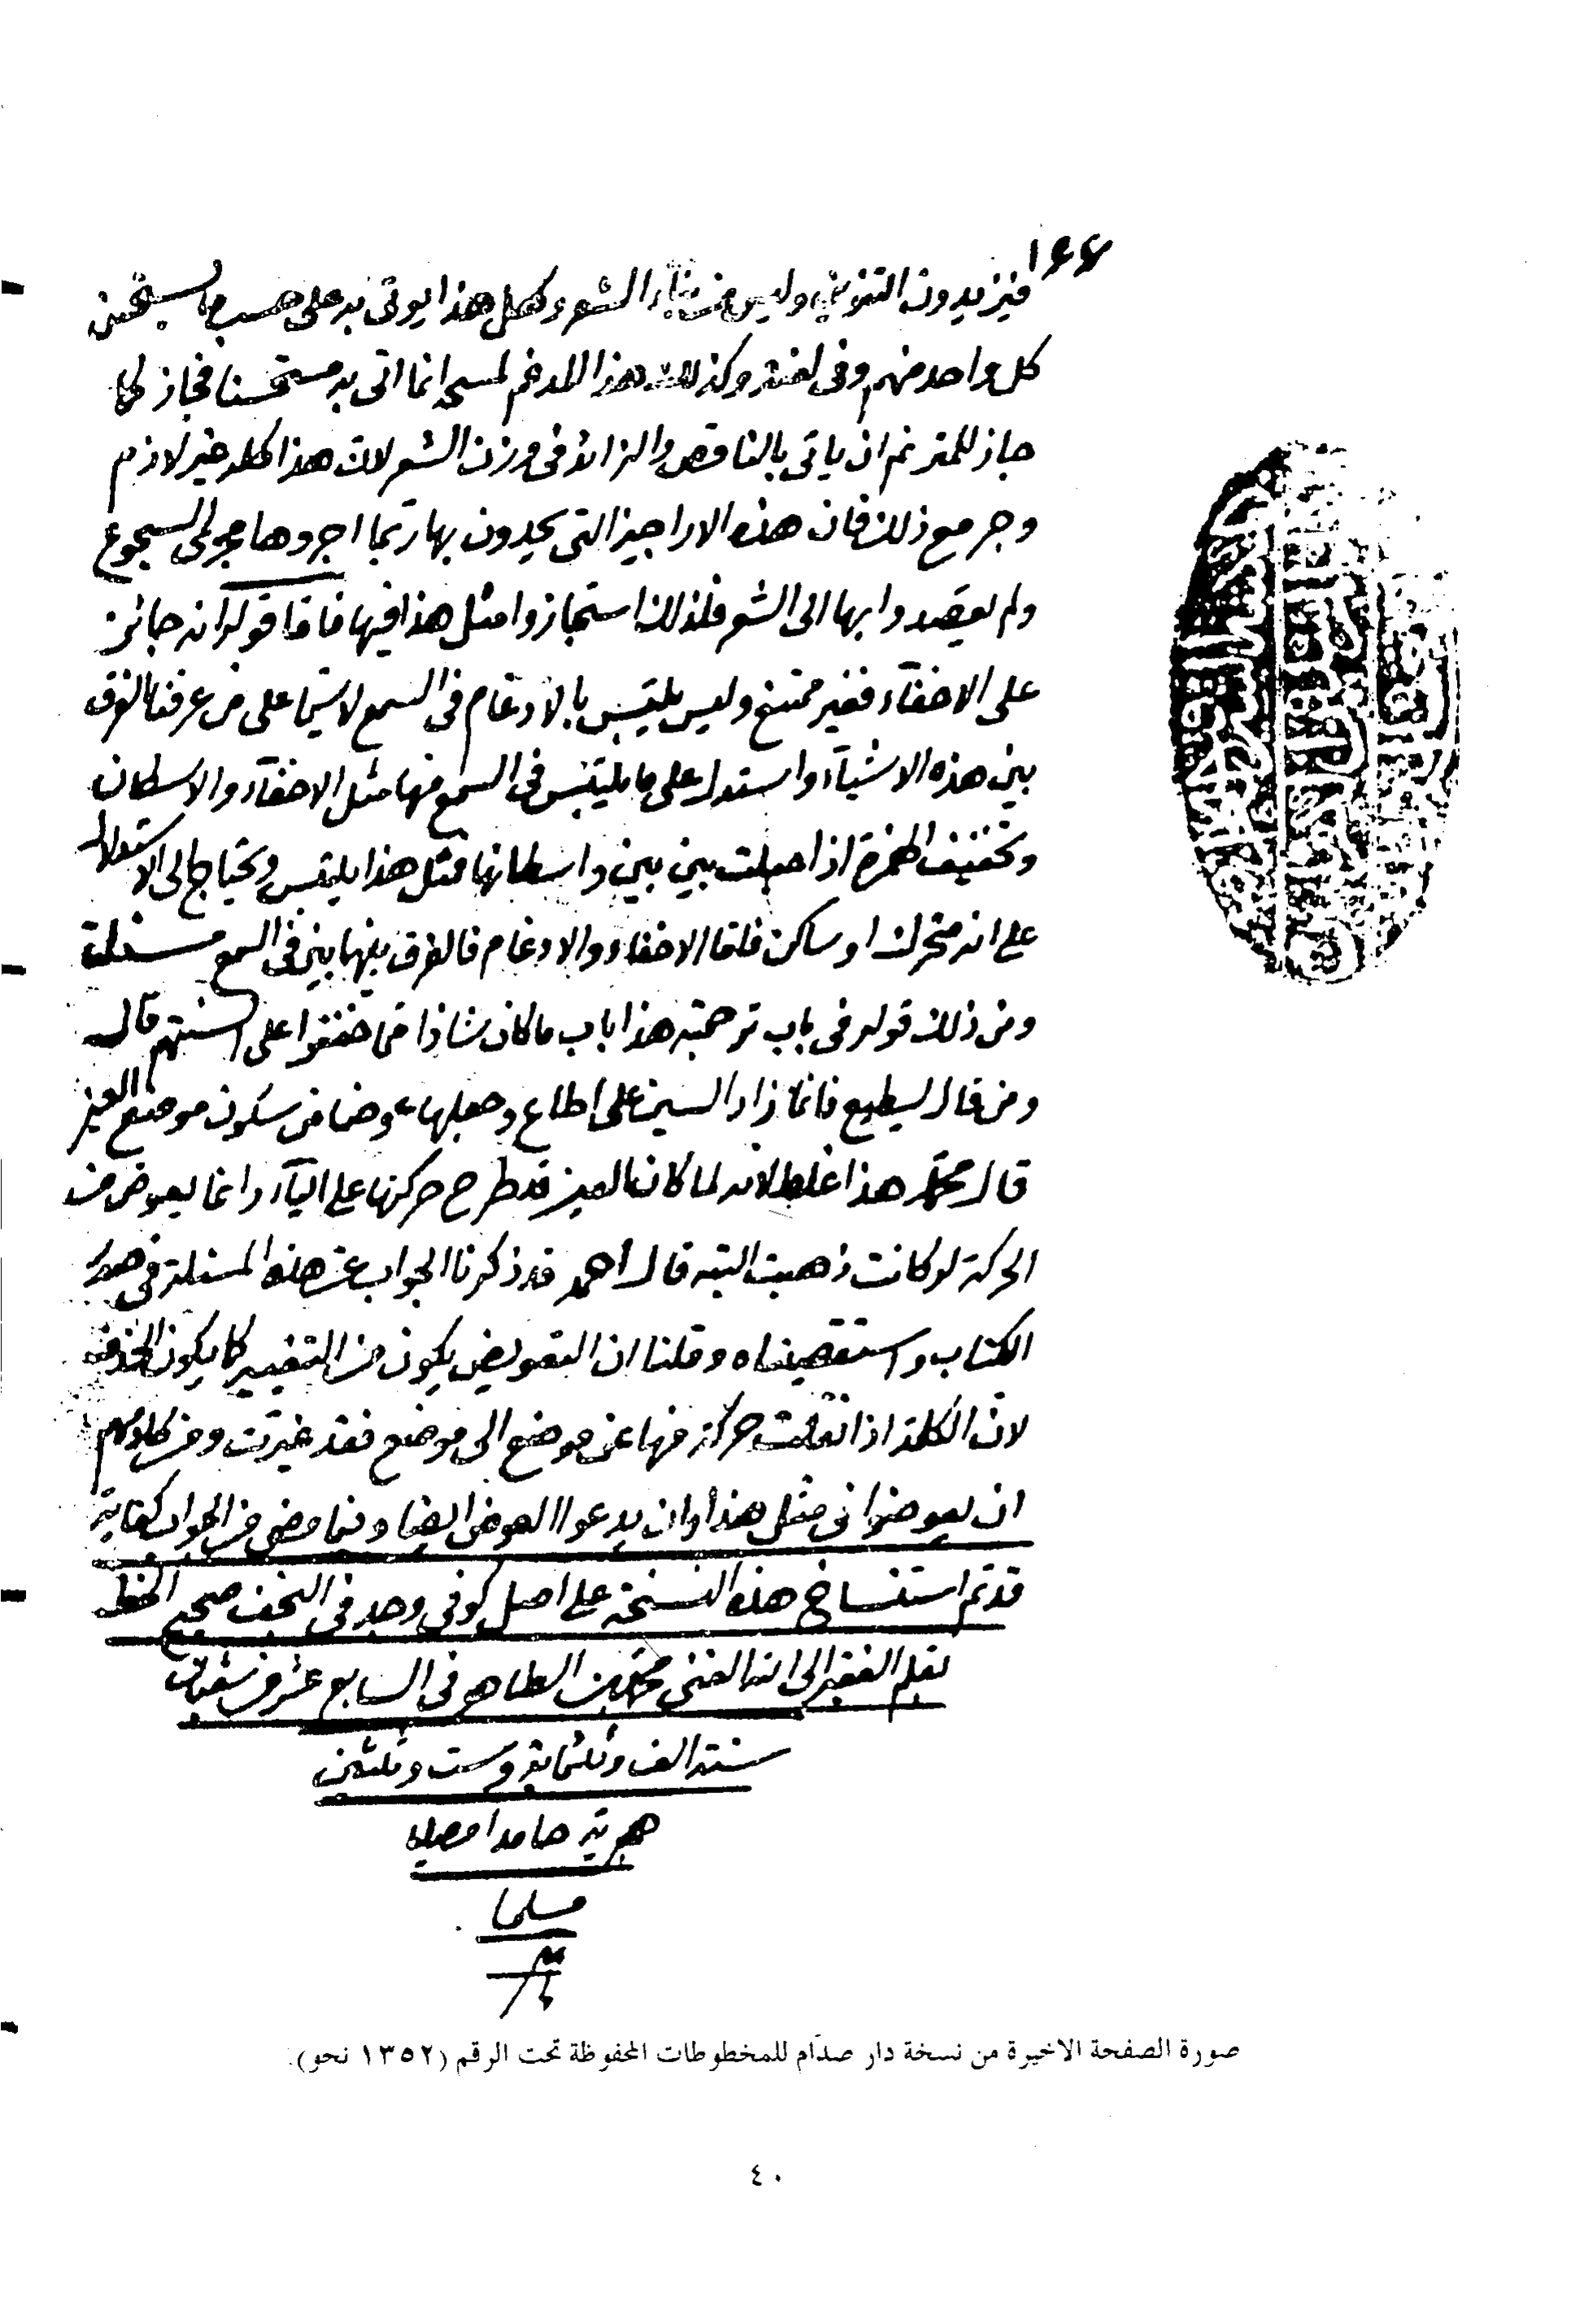 ١٦٦
فيزيدون التنوين وليس من بناء الشعر وكل هذا يوتى به على حسب ما يستحسن
كل واحد منهم وفى لغته وكذلك هذا المدغم لمسحى انما اتى به مستحسنا فجاز كما
جاز للمترنم ان ياتى بالناقص والزائد فى وزن الشعر لان هذا كله غير لازم
مع ذلك فان هذه الاراجيز التى يحدون بها ربما اجروها مجرى السجوع
ولم يقصدوا بها الى الشعر فلذلك استجازوا مثل هذا فيها فاما قوله انه جائز
على الاخفآء فغير ممتنع وليس يلتبس بالادغام فى السمع لاسيما على من عرف الفرق
بين هذه الاشيآء واستدل على ما يلتبس فى السمع منها مثل الاخفآء والاسكان
وتخفيف الهمزة اذا جعلت بين بين واسكانها فمثل هذا يلتبس ويحتاج الى الاستدلال
على انه متحرك او ساكن فاما الاخفاء والادغام فالفرق بينهما بين فى السمع مسئلة
ومن ذلك قوله فى باب ترجمته هذا باب ما كان شاذا مما خففوا على السنتهم قال
ومن قال يسطيع فانما زاد السين على اطاع وجعلها عوضا من سكون موضع العين
قال محمد هذا غلط لانه لما كان العين قد طرح حركتها على اليآء وانما يعوض من
الحركة لو كانت ذهبت البته قال احمد قد ذكرنا الجواب عن هذه المسئلة فى صدر
الكتاب واستقصيناه وقلنا ان التعويض يكون من التغيير كما يكون الحذف
لان الكلمة اذا نقلت حركة منها عن موضع الى موضع فقد غيرت ومن كلامهم
ان يعوضوا فى مثل هذا وان يدعوا العوض ايضا وفيما مضى من الجواب كفاية
قد تم استنساخ هذه النسخة على اصل كوفى وجد فى النجف صحيح الخط
بقلم الفقير الى الله الغنى محمد بن الطاهر فى السابع عشر من شعبان
سنة الف وثلثماية وست وثلثين
هجرية حامدا مصليا
مسلما
صورة الصفحة الاخيرة من نسخة دار صدّام للمخطوطات المحفوظة تحت الرقم (١٣٥٢ نحو).
٤٠